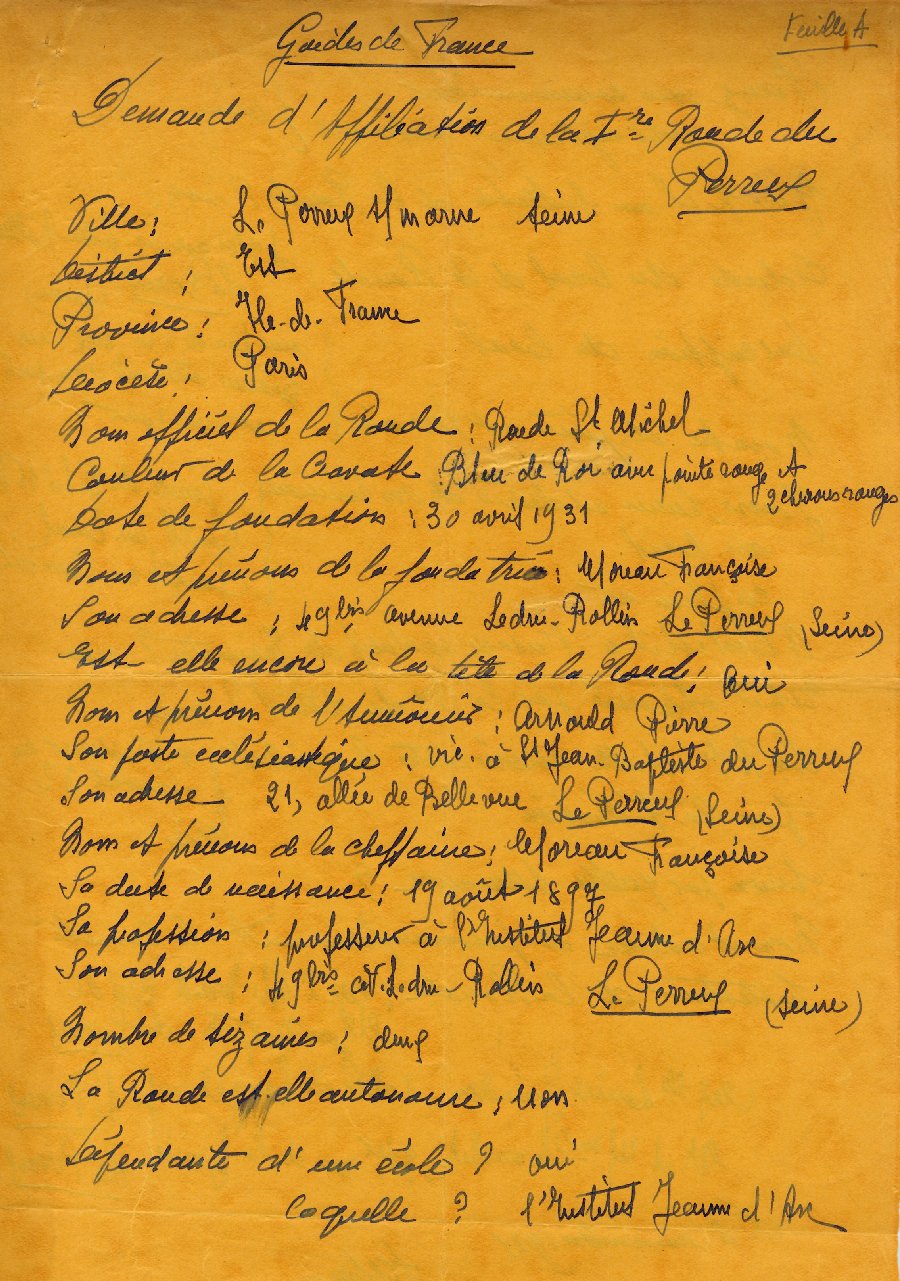 Guides de France
Feuille A
Demande d'Affiliation de la Ire Ronde du
Perreux
Ville : Le Perreux s/ marne Seine
District : Est
Province : Ile-de-France
Diocèse : Paris
Nom officiel de la Ronde : Ronde St Michel
Couleur de la Cravate : Bleu de Roi avec pointe rouge et
2 chevrons rouges
Date de fondation : 30 avril 1931
Nom et prénoms de la fondatrice : Moreau Françoise
Son adresse : 49 bis, avenue Ledru-Rollin Le Perreux (Seine)
Est-elle encore à la tête de la Ronde : oui
Nom et prénoms de l'Aumônier : Arnould Pierre
Son poste ecclésiastique : vic. à St Jean-Baptiste du Perreux
Son adresse 21, allée de Bellevue Le Perreux (Seine)
Nom et prénoms de la cheftaine : Moreau Françoise
Sa date de naissance : 19 août 1897
Sa profession : professeur à l'Institut Jeanne d'Arc
Son adresse : 49 bis av. Ledru-Rollin Le Perreux (Seine)
Nombre de sizaines : deux
La Ronde est-elle autonome : non
Dépendante d'une école ? oui
laquelle ? l'Institut Jeanne d'Arc